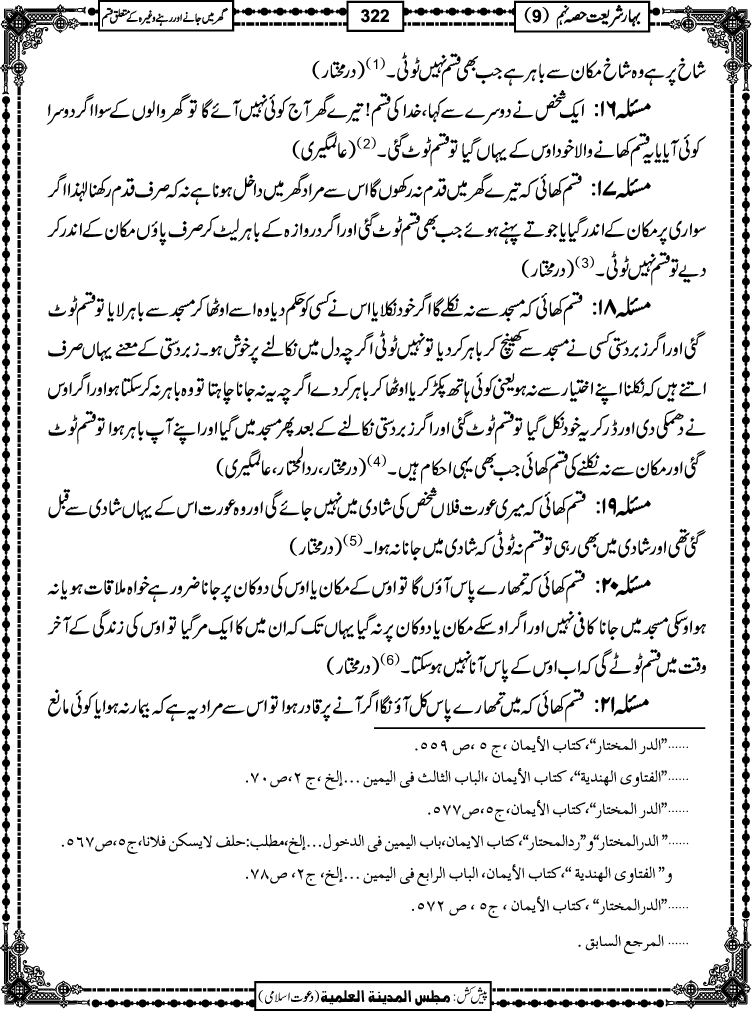 بہارِ شریعت حصہ نہم (9)
322
گھر میں جانے اور رہنے وغیرہ کے متعلق قسم
شاخ پر ہے وہ شاخ مکان سے باہر ہے جب بھی قسم نہیں ٹوٹی۔(1) (درمختار)
مسئلہ ۱۶: ایک شخص نے دوسرے سے کہا، خدا کی قسم! تیرے گھر آج کوئی نہیں آئے گا تو گھر والوں کے سوا اگر دوسرا
کوئی آیا یا یہ قسم کھانے والا خود اوس کے یہاں گیا تو قسم ٹوٹ گئی۔(2) (عالمگیری)
مسئلہ ۱۷: قسم کھائی کہ تیرے گھر میں قدم نہ رکھوں گا اس سے مراد گھر میں داخل ہونا ہے نہ کہ صرف قدم رکھنا لہٰذا اگر
سواری پر مکان کے اندر گیا یا جوتے پہنے ہوئے جب بھی قسم ٹوٹ گئی اور اگر دروازہ کے باہر لیٹ کر صرف پاؤں مکان کے اندر کر
دیے تو قسم نہیں ٹوٹی۔(3) (درمختار)
مسئلہ ۱۸: قسم کھائی کہ مسجد سے نہ نکلے گا اگر خود نکلا یا اس نے کسی کو حکم دیا وہ اسے اوٹھا کر مسجد سے باہر لایا تو قسم ٹوٹ
گئی اور اگر زبردستی کسی نے مسجد سے کھینچ کر باہر کر دیا تو نہیں ٹوٹی اگر چہ دل میں نکالنے پر خوش ہو۔ زبردستی کے معنے یہاں صرف
اتنے ہیں کہ نکلنا اپنے اختیار سے نہ ہو یعنی کوئی ہاتھ پکڑ کر یا اوٹھا کر باہر کر دے اگر چہ یہ نہ جانا چاہتا تو وہ باہر نہ کر سکتا ہو اور اگر اوس
نے دھمکی دی اور ڈر کر یہ خود نکل گیا تو قسم ٹوٹ گئی اور اگر زبردستی نکالنے کے بعد پھر مسجد میں گیا اور اپنے آپ باہر ہوا تو قسم ٹوٹ
گئی اور مکان سے نہ نکلنے کی قسم کھائی جب بھی یہی احکام ہیں۔(4) (درمختار، ردالمحتار، عالمگیری)
مسئلہ ۱۹: قسم کھائی کہ میری عورت فلاں شخص کی شادی میں نہیں جائے گی اور وہ عورت اس کے یہاں شادی سے قبل
گئی تھی اور شادی میں بھی رہی تو قسم نہ ٹوٹی کہ شادی میں جانا نہ ہوا۔(5) (درمختار)
مسئلہ ۲۰: قسم کھائی کہ تمھارے پاس آؤں گا تو اوس کے مکان یا اوس کی دوکان پر جانا ضرور ہے خواہ ملاقات ہو یا نہ
ہو اوسکی مسجد میں جانا کافی نہیں اور اگر اوسکے مکان یا دوکان پر نہ گیا یہاں تک کہ ان میں کا ایک مر گیا تو اوس کی زندگی کے آخر
وقت میں قسم ٹوٹے گی کہ اب اوس کے پاس آنا نہیں ہو سکتا۔(6) (درمختار)
مسئلہ ۲۱: قسم کھائی کہ میں تمھارے پاس کل آؤنگا اگر آنے پر قادر ہوا تو اس سے مراد یہ ہے کہ بیمار نہ ہوا یا کوئی مانع
......"الدر المختار"، کتاب الأیمان ،ج ٥ ،ص ٥٥٩.
......"الفتاوی الهندیة"، کتاب الأیمان ،الباب الثالث فی الیمین ...إلخ ،ج ٢،ص ٧٠.
......"الدر المختار"، کتاب الأیمان،ج٥،ص٥٧٧.
......" الدرالمختار"و"ردالمحتار"،کتاب الایمان،باب الیمین فی الدخول...إلخ،مطلب:حلف لایسکن فلانا،ج٥،ص٥٦٧.
و" الفتاوی الهندیة "،کتاب الأیمان، الباب الرابع فی الیمین ...إلخ، ج٢، ص٧٨.
......"الدرالمختار" ،کتاب الأیمان ، ج٥ ، ص ٥٧٢.
...... المرجع السابق .
پیش کش: مجلس المدینة العلمیة (دعوتِ اسلامی)